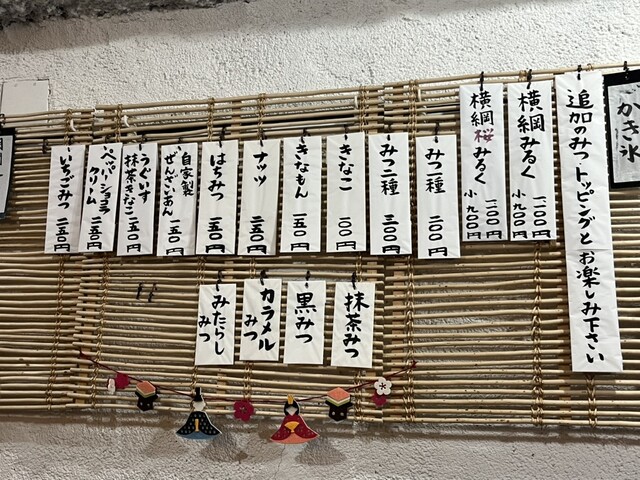 かき氷
追加のみつ・トッピングと
お楽しみ下さい
横綱みるく
一二〇〇円
小九〇〇円
横綱桜みるく
一二〇〇円
小九〇〇円
みつ一種
二〇〇円
みつ二種
三〇〇円
きなこ
一〇〇円
きなもん
一五〇円
ナッツ
二五〇円
はちみつ
一五〇円
自家製
ぜんざいあん
一五〇円
うぐいす
抹茶きなこ
一五〇円
ペッパーショコラ
クリーム
二五〇円
いちごみつ
二五〇円
抹茶みつ
黒みつ
カラメル
みつ
みたらし
みつ